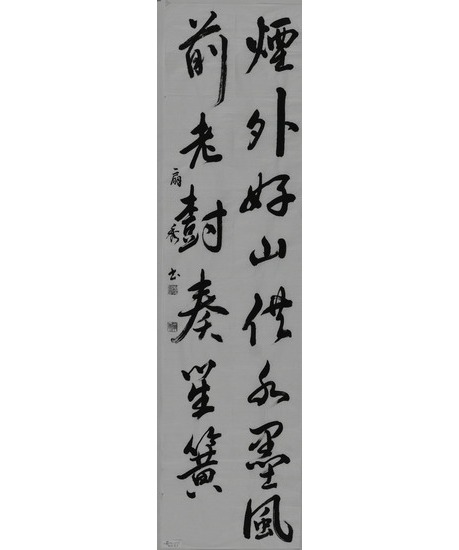 煙外好山供水墨風
前老樹奏笙簧
扇秀書